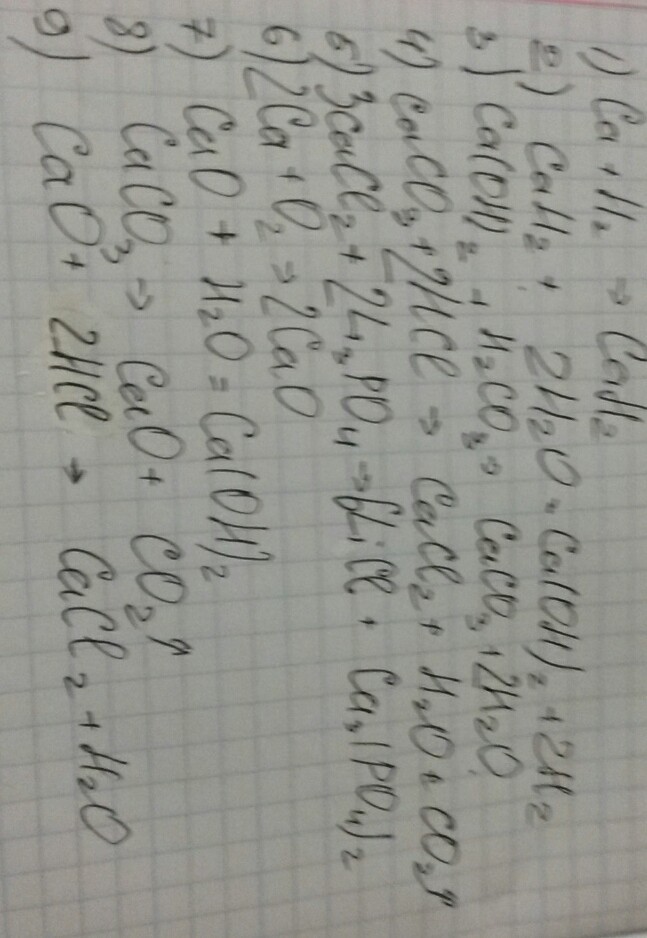 1) Ca + H₂ → CaH₂
2) CaH₂ + 2H₂O = Ca(OH)₂ + 2H₂
3) Ca(OH)₂ + H₂CO₃ → CaCO₃ + 2H₂O
4) CaCO₃ + 2HCl → CaCl₂ + H₂O + CO₂↑
5) 3CaCl₂ + 2Li₃PO₄ → 6LiCl + Ca₃(PO₄)₂
6) 2Ca + O₂ → 2CaO
7) CaO + H₂O = Ca(OH)₂
8) CaCO₃ → CaO + CO₂↑
9) CaO + 2HCl → CaCl₂ + H₂O